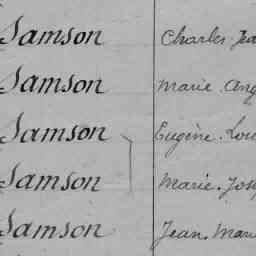 Samson Charles Jea
Samson Marie Ang
Samson Eugène Lou
Samson Marie Jos
Samson Jean Mari